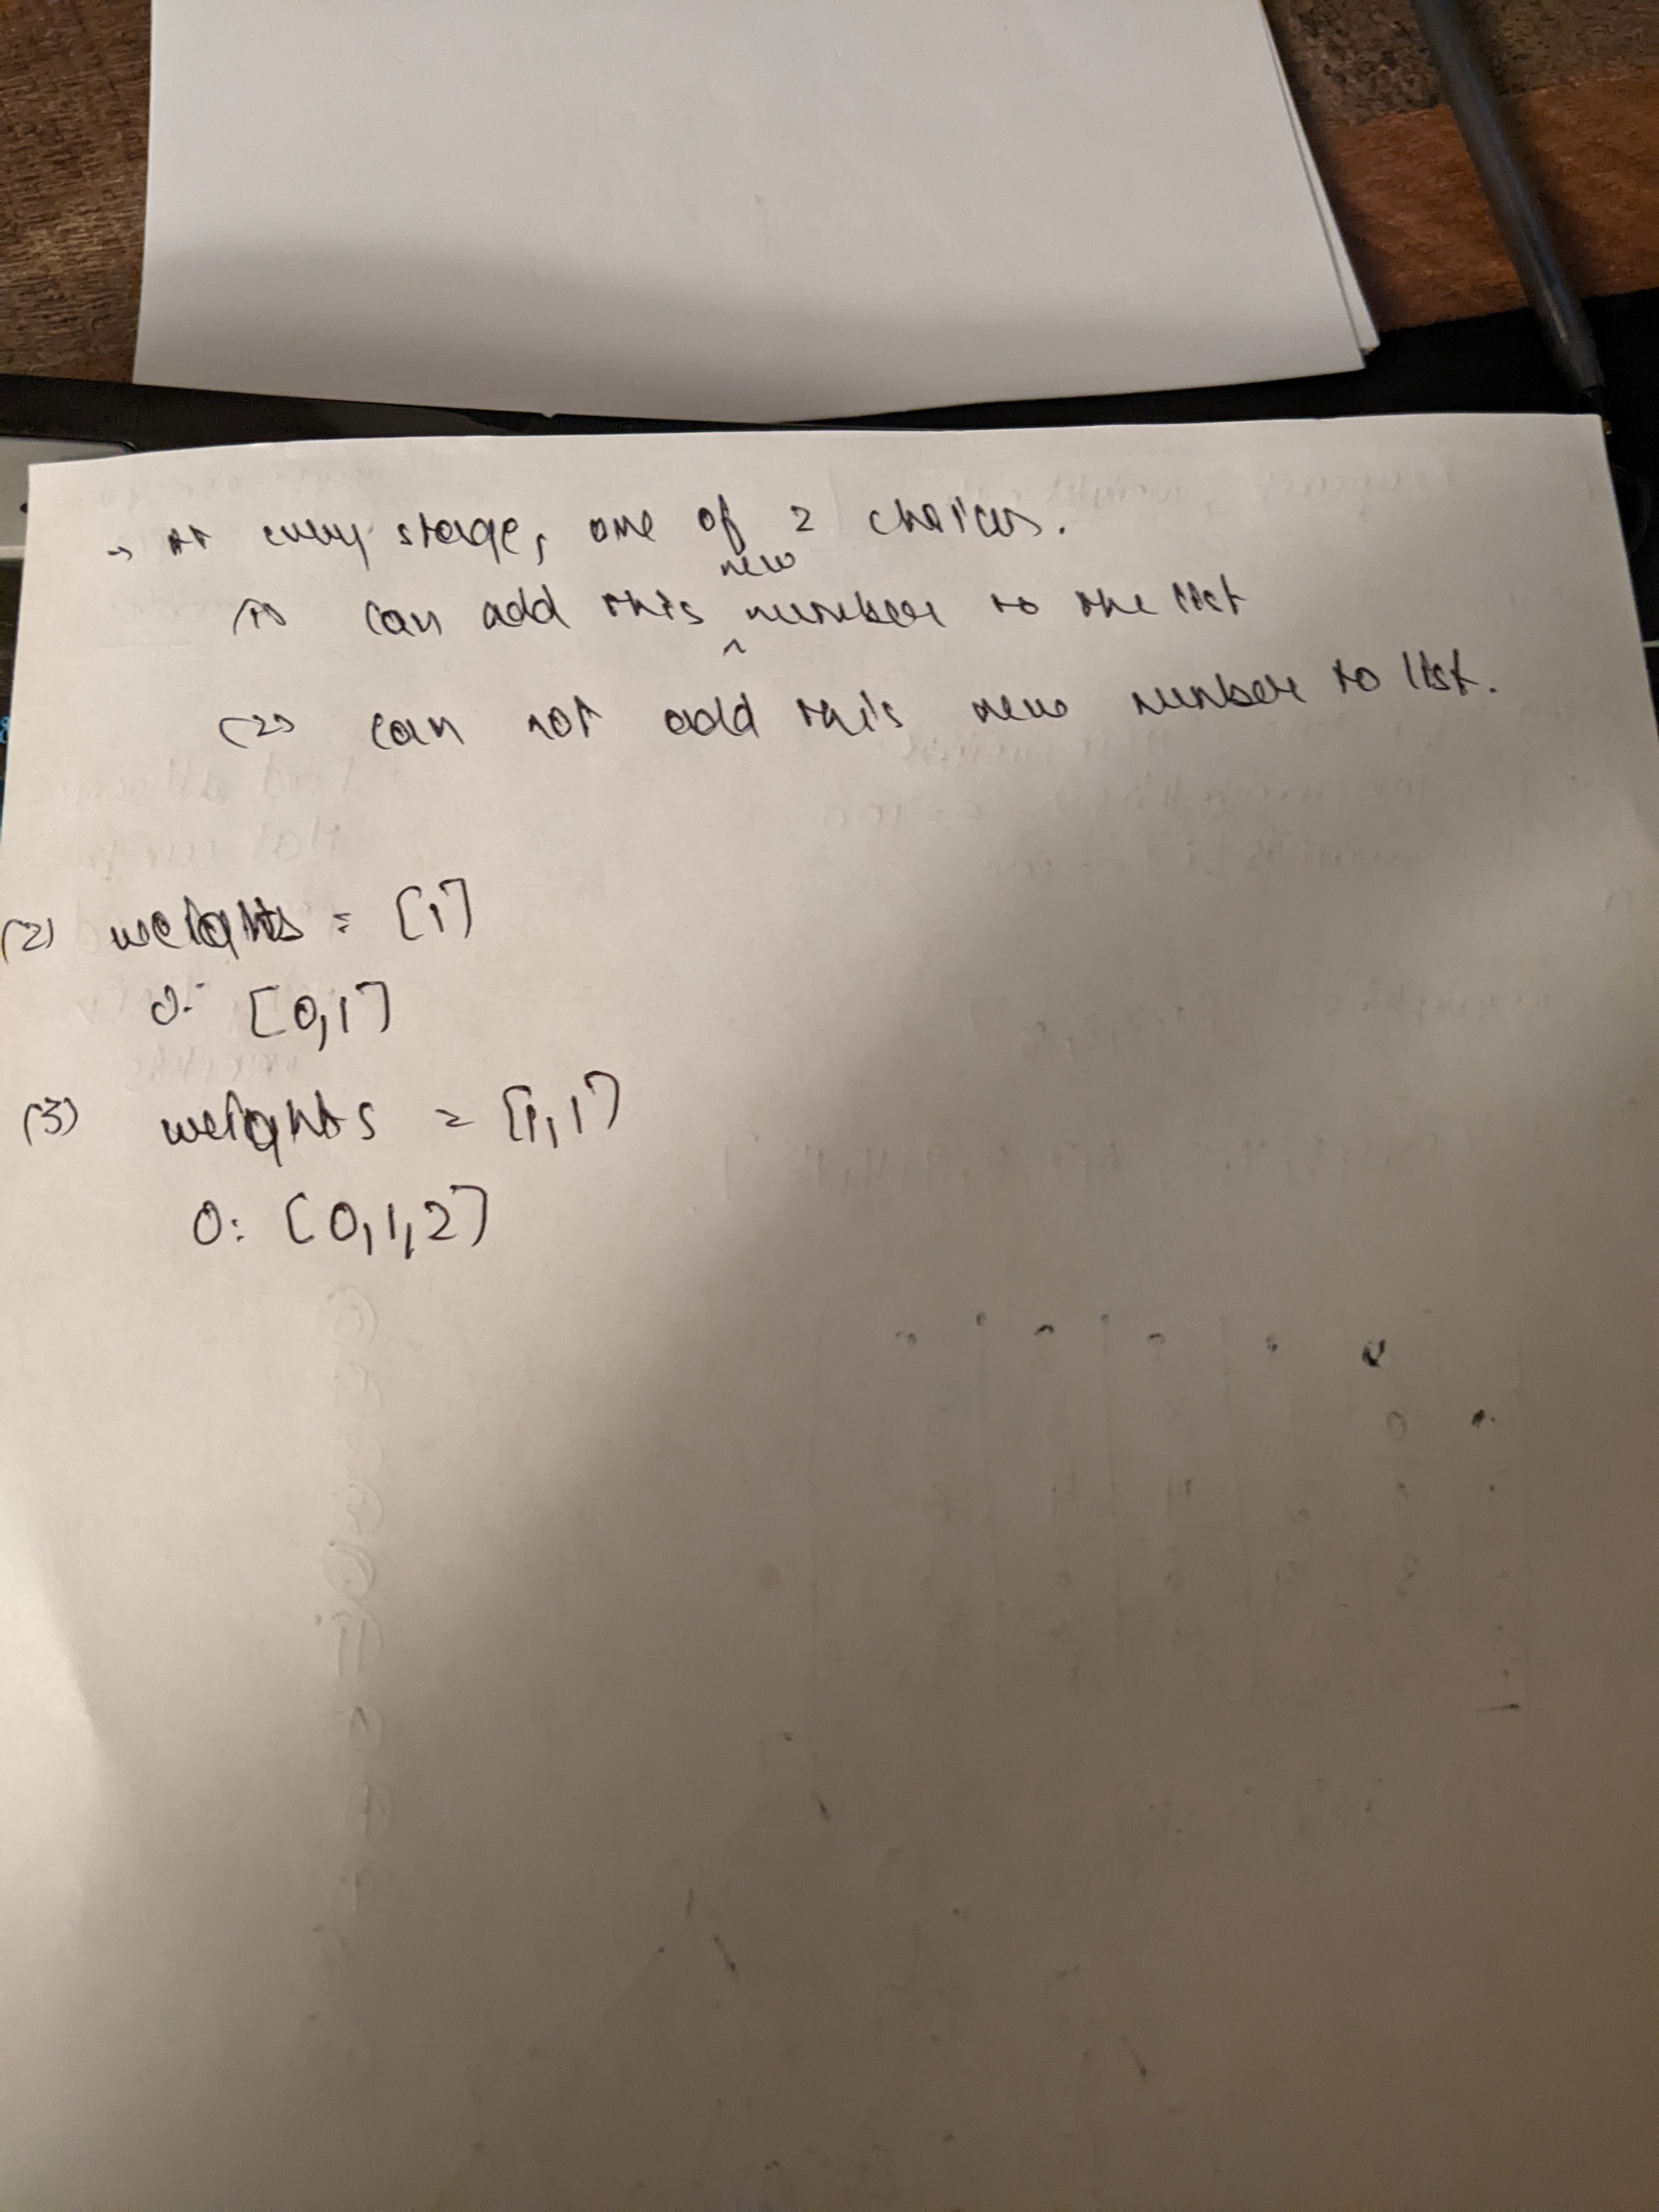 → At every stage, one of 2 choices.
(1) can add this new number to the list
(2) can not add this new number to list.
(2) weights = [1]
O: [0,1]
(3) weights = [1,1]
O: [0,1,2]